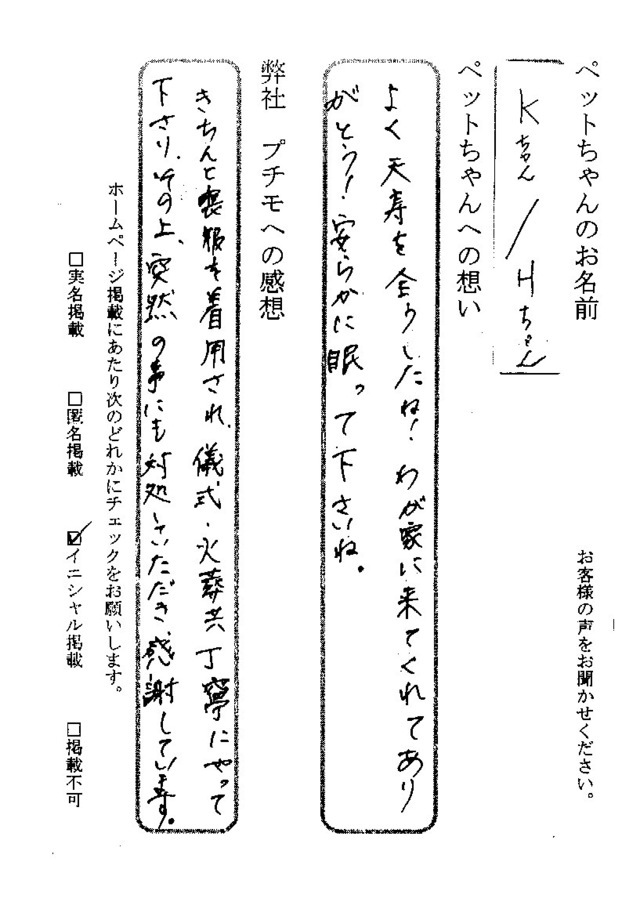 お客様の声をお聞かせください。
ペットちゃんのお名前
Kちゃん／Hちゃん
ペットちゃんへの想い
よく天寿を全うしたね！わが家に来てくれてあり
がとう！安らかに眠って下さいね。
弊社　プチモへの感想
きちんと喪服を着用され、儀式・火葬共丁寧にやって
下さり、その上、突然の事にも対処していただき、感謝しています。
ホームページ掲載にあたり次のどれかにチェックをお願いします。
□実名掲載　□匿名掲載　☑イニシャル掲載　□掲載不可